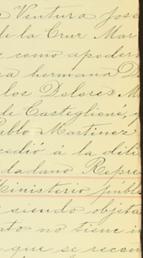 Ventura José
de la Cruz Mar
como apoder
hermana D
los Dolores M
de Castiglioné, y
Pablo Martinez
cedió á la dili
dadano Repre
Ministerio públ
siendo objeta
to no tiene in
que se recon